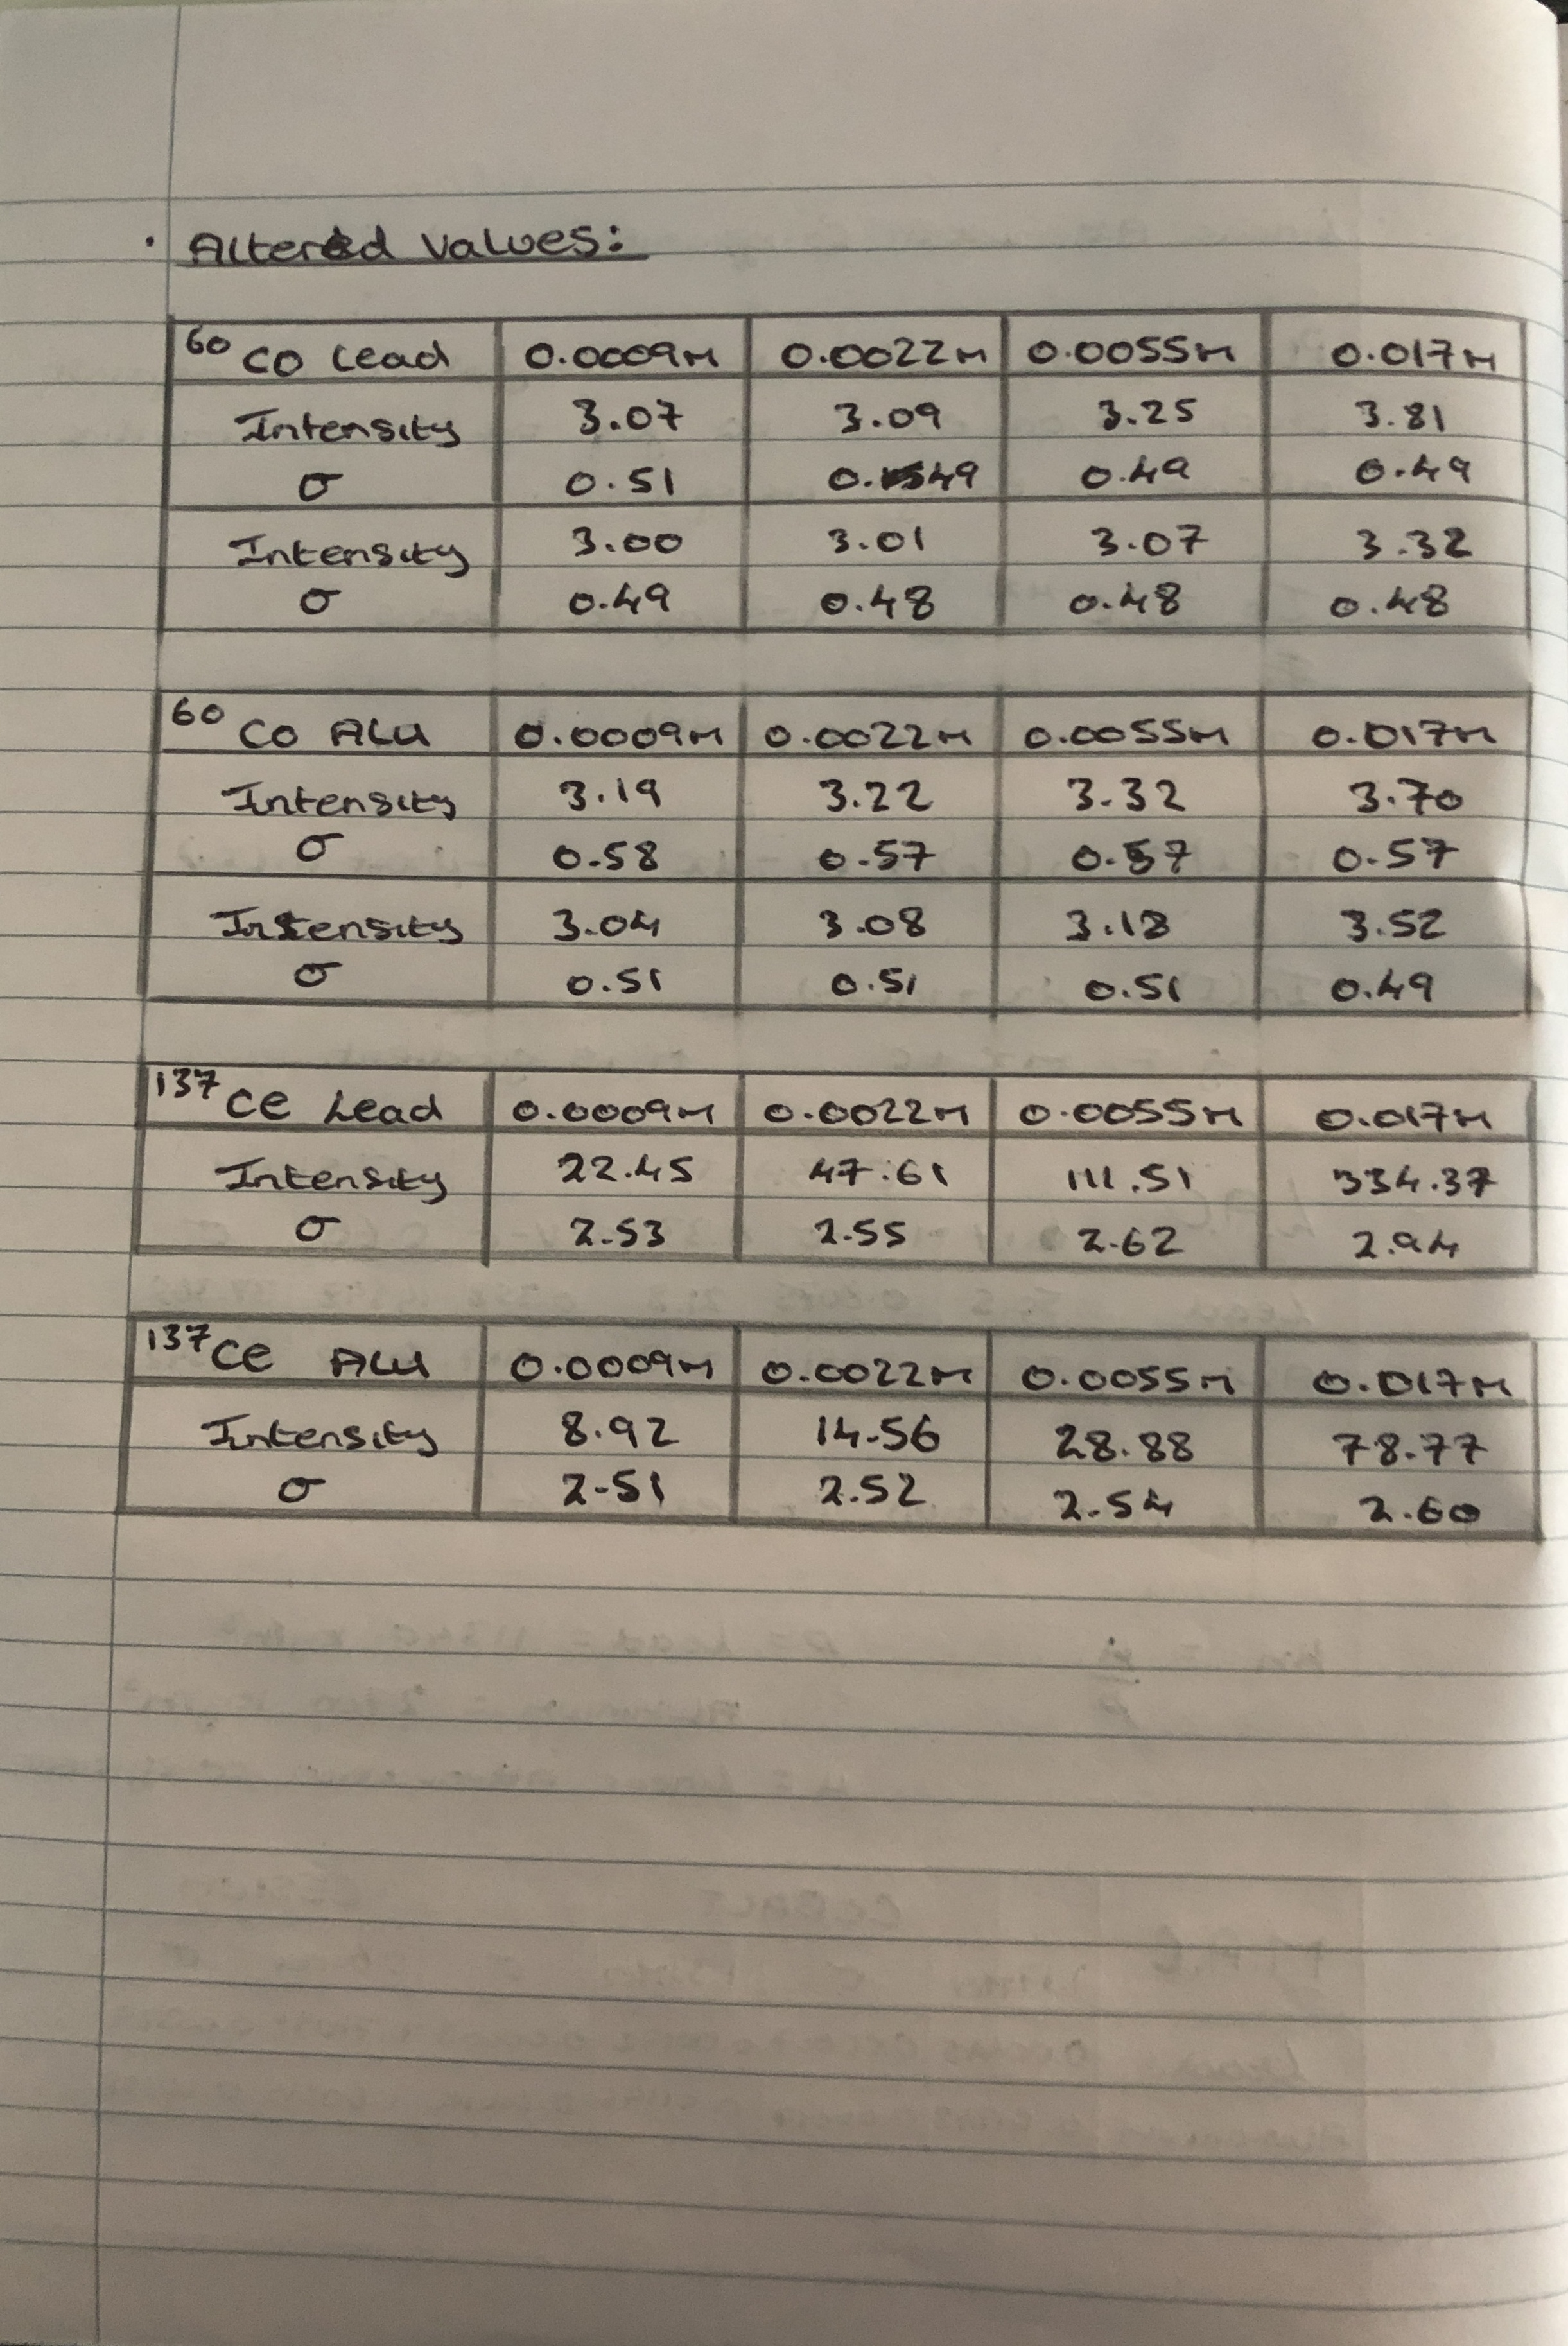 · Altered Values:
60 Co Lead 0.0009m 0.0022m 0.0055m 0.017m
Intensity 3.07 3.09 3.25 3.81
σ 0.51 0.49 0.49 0.49
Intensity 3.00 3.01 3.07 3.32
σ 0.49 0.48 0.48 0.48
60 Co Alu 0.0009m 0.0022m 0.0055m 0.017m
Intensity 3.19 3.22 3.32 3.70
σ 0.58 0.57 0.57 0.57
Intensity 3.04 3.08 3.18 3.52
σ 0.51 0.51 0.51 0.49
137 Ce Lead 0.0009m 0.0022m 0.0055m 0.017m
Intensity 22.45 47.61 111.51 334.37
σ 2.53 2.55 2.62 2.94
137 Ce Alu 0.0009m 0.0022m 0.0055m 0.017m
Intensity 8.92 14.56 28.88 78.77
σ 2.51 2.52 2.54 2.60